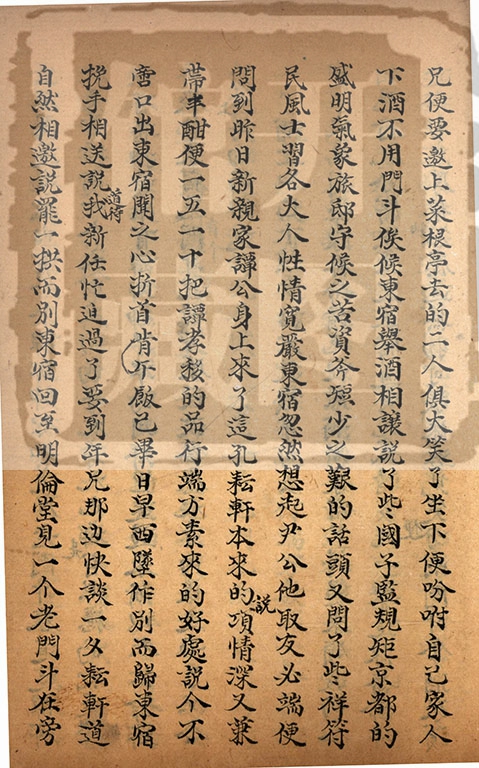 兄便要邀上菜根亭去的二人俱大笑了坐下便吩咐自己家人
下酒不用門斗俟候東宿舉酒相讓說了些國子監規矩京都的
盛明氣象旅邸守候之苦資斧短少之艱的話頭又問了些祥符
民風士習各大人性情寬嚴東宿忽然想起尹公他取友必端便
問到昨日新親家譚公身上來了這孔耘軒本來的說項情深又兼
帶半酣便一五一十把譚孝移的品行端方素來的好處說个不
啻口出東宿聞之心折首肯不厭已畢日早西墜作別而歸東宿
挽手相送說我道符新任忙迫過了要到年兄那边快談一夕耘軒道
自然相邀說罷一拱而別東宿回至明倫堂見一个老門斗在旁